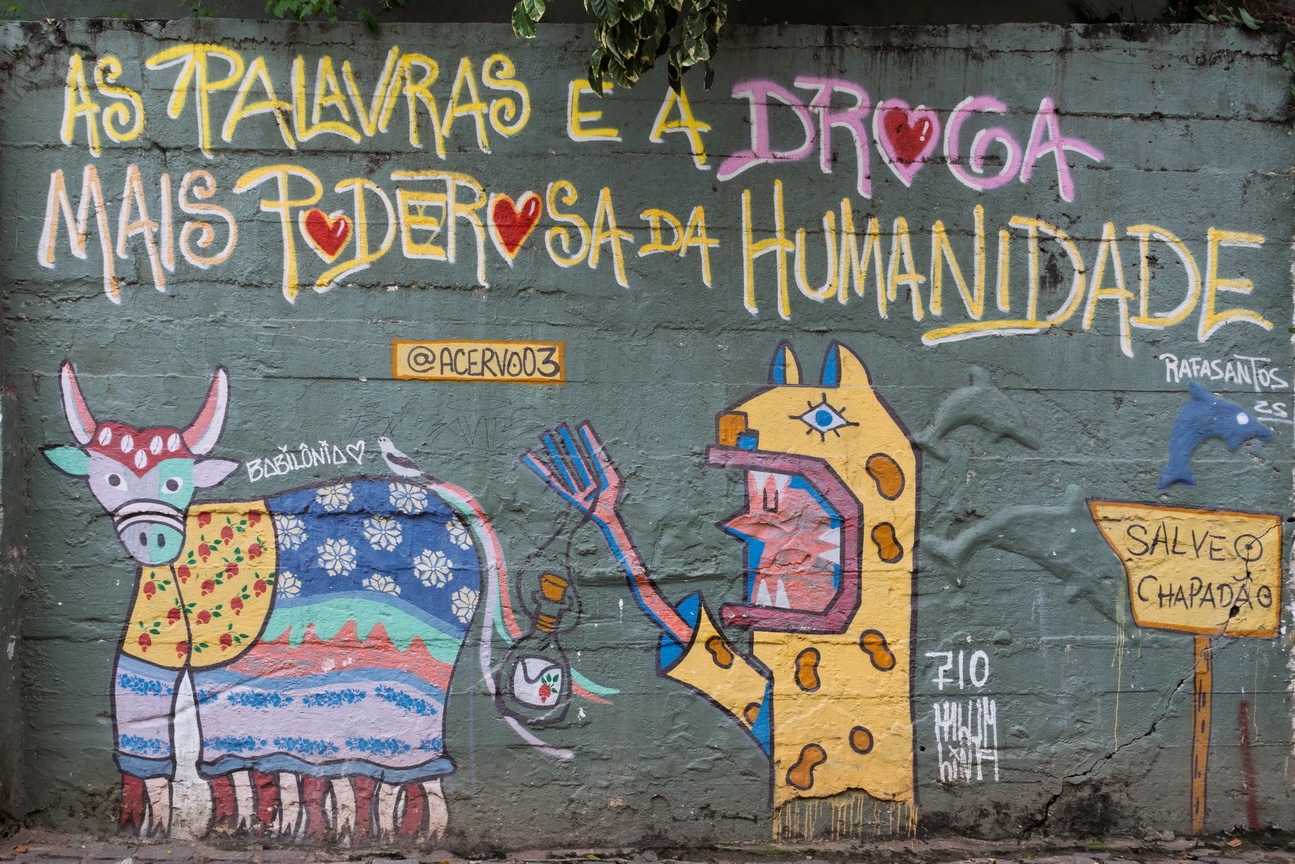 AS PALAVRAS E A DROGA
MAIS PODEROSA DA HUMANIDADE
@ACERVO03
RAFASANTOS
BABILÔNIA
SALVE O
CHAPADÃO
710